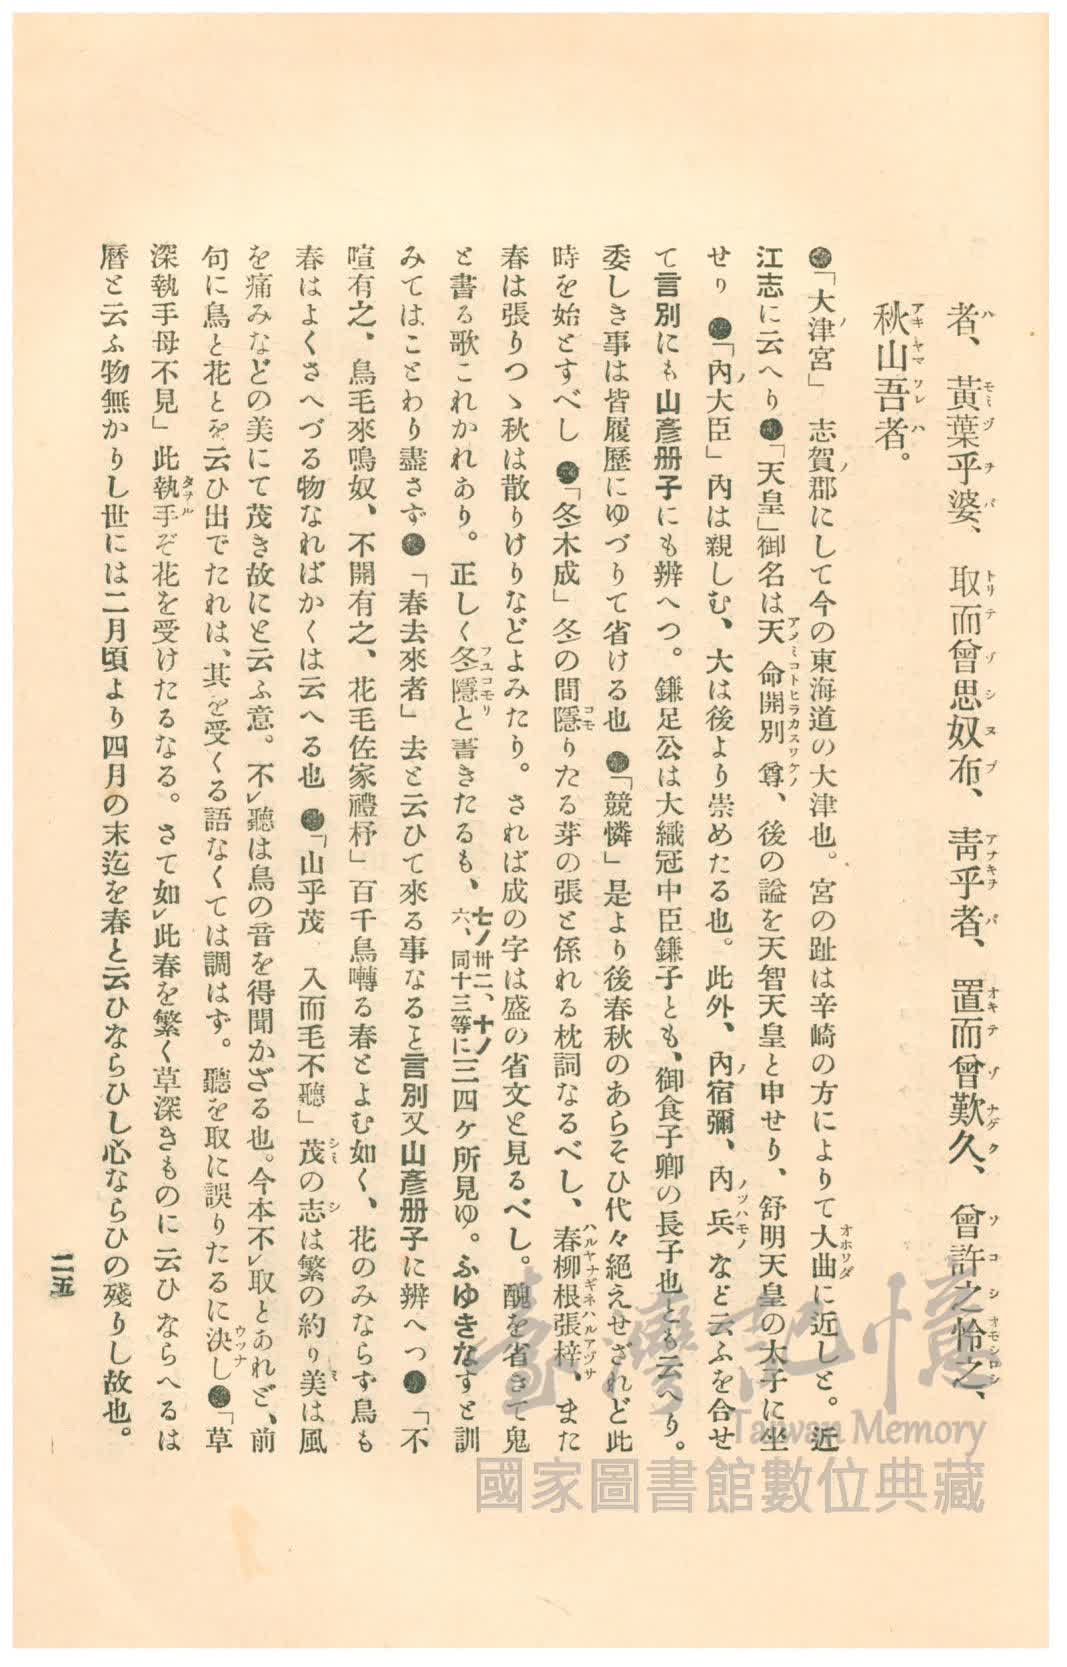 者、黃葉乎婆、取而曾思奴布、靑乎者、置而曾歎久、曾許之怜之、
秋山吾者。
●「大津宮」　志賀郡にして今の東海道の大津也。宮の趾は辛崎の方によりて大曲に近しと。近
江志に云へり●「天皇」御名は天命開別尊、後の謚を天智天皇と申せり、舒明天皇の太子に坐
せり●「內大臣」內は親しむ、大は後より崇めたる也。此外、內宿彌、內兵など云ふを合せ
て言別にも山彥册子にも辨へつ。鎌足公は大織冠中臣鎌子とも、御食子卿の長子也とも云へり。
委しき事は皆履歷にゆづりて省ける也●「競憐」是より後春秋のあらそひ代々絕えせざれど此
時を始とすべし●「冬木成」冬の間隱りたる芽の張と係れる枕詞なるべし、春柳根張梓、また
春は張りつゝ秋は散りけりなどよみたり。されば成の字は盛の省文と見るべし。醜を省きて鬼
と書る歌これかれあり。正しく冬隱と書きたるも、七ノ卅二、十ノ六、同十三等に三四ヶ所見ゆ。ふゆきなすと訓
みてはことわり盡さず●「春去來者」去と云ひて來る事なること言別又山彥册子に辨へつ●「不
喧有之、鳥毛來鳴奴、不開有之、花毛佐家禮杼」百千鳥囀る春とよむ如く、花のみならず鳥も
春はよくさへづる物なればかくは云へる也●「山乎茂　入而毛不聽」茂の志は繁の約り美は風
を痛みなどの美にて茂き故にと云ふ意。不レ聽は鳥の音を得聞かざる也。今本不レ取とあれど、前
句に鳥と花とを云ひ出でたれは、其を受くる語なくては調はず。聽を取に誤りたるに決し●「草
深執手母不見」此執手ぞ花を受けたるなる。さて如レ此春を繁く草深きものに云ひならへるは
曆と云ふ物無かりし世には二月頃より四月の末迄を春と云ひならひし心ならひの殘りし故也。
二五
臺灣記憶
Taiwan Memory
國家圖書館數位典藏